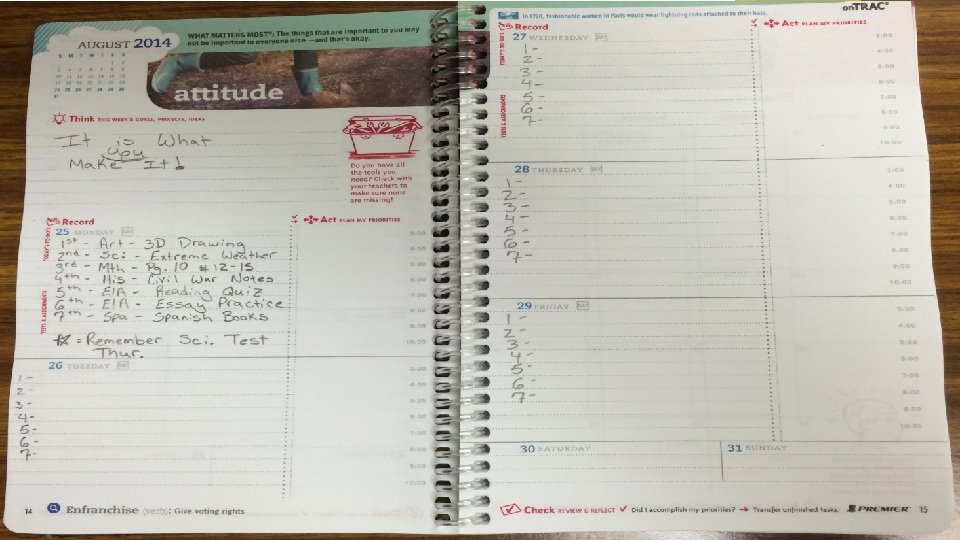 AUGUST 2014
WHAT MATTERS MOST®: The things that are important to you may
not be important to everyone else—and that's okay.
S M T W T F S
1 2
3 4 5 6 7 8 9
10 11 12 13 14 15 16
17 18 19 20 21 22 23
24 25 26 27 28 29 30
31
attitude
Think THIS WEEK'S GOALS, PROJECTS, IDEAS
It is What
you
Make It!
Do you have all
the tools you
need? Check with
your teachers to
make sure none
are missing!
Record
Act PLAN MY PRIORITIES
TODAY'S TO-DO'S
TESTS & ASSIGNMENTS
25 MONDAY DAY
1st - Art - 3D Drawing
2nd - Sci - Extreme Weather
3rd - Mth - Pg. 10 # 12-15
4th - His - Civil War Notes
5th - ElA - Reading Quiz
6th - ElA - Essay Practice
7th - Spa - Spanish Books
☆ = Remember Sci. Test
Thur.
3:00
4:00
5:00
6:00
7:00
8:00
9:00
10:00
26 TUESDAY DAY
1 -
2 -
3 -
4 -
5 -
6 -
7 -
3:00
4:00
5:00
6:00
7:00
8:00
9:00
10:00
14 Enfranchise (verb): Give voting rights
In 1778, fashionable women in Paris would wear lightning rods attached to their hats.
onTRAC®
Record
Act PLAN MY PRIORITIES
TODAY'S TO-DO'S
TESTS & ASSIGNMENTS
27 WEDNESDAY DAY
1 -
2 -
3 -
4 -
5 -
6 -
7 -
3:00
4:00
5:00
6:00
7:00
8:00
9:00
10:00
28 THURSDAY DAY
1 -
2 -
3 -
4 -
5 -
6 -
7 -
3:00
4:00
5:00
6:00
7:00
8:00
9:00
10:00
29 FRIDAY DAY
1 -
2 -
3 -
4 -
5 -
6 -
7 -
3:00
4:00
5:00
6:00
7:00
8:00
9:00
10:00
30 SATURDAY
31 SUNDAY
Check REVIEW & REFLECT ✓ Did I accomplish my priorities? → Transfer unfinished tasks. PREMIER® 15